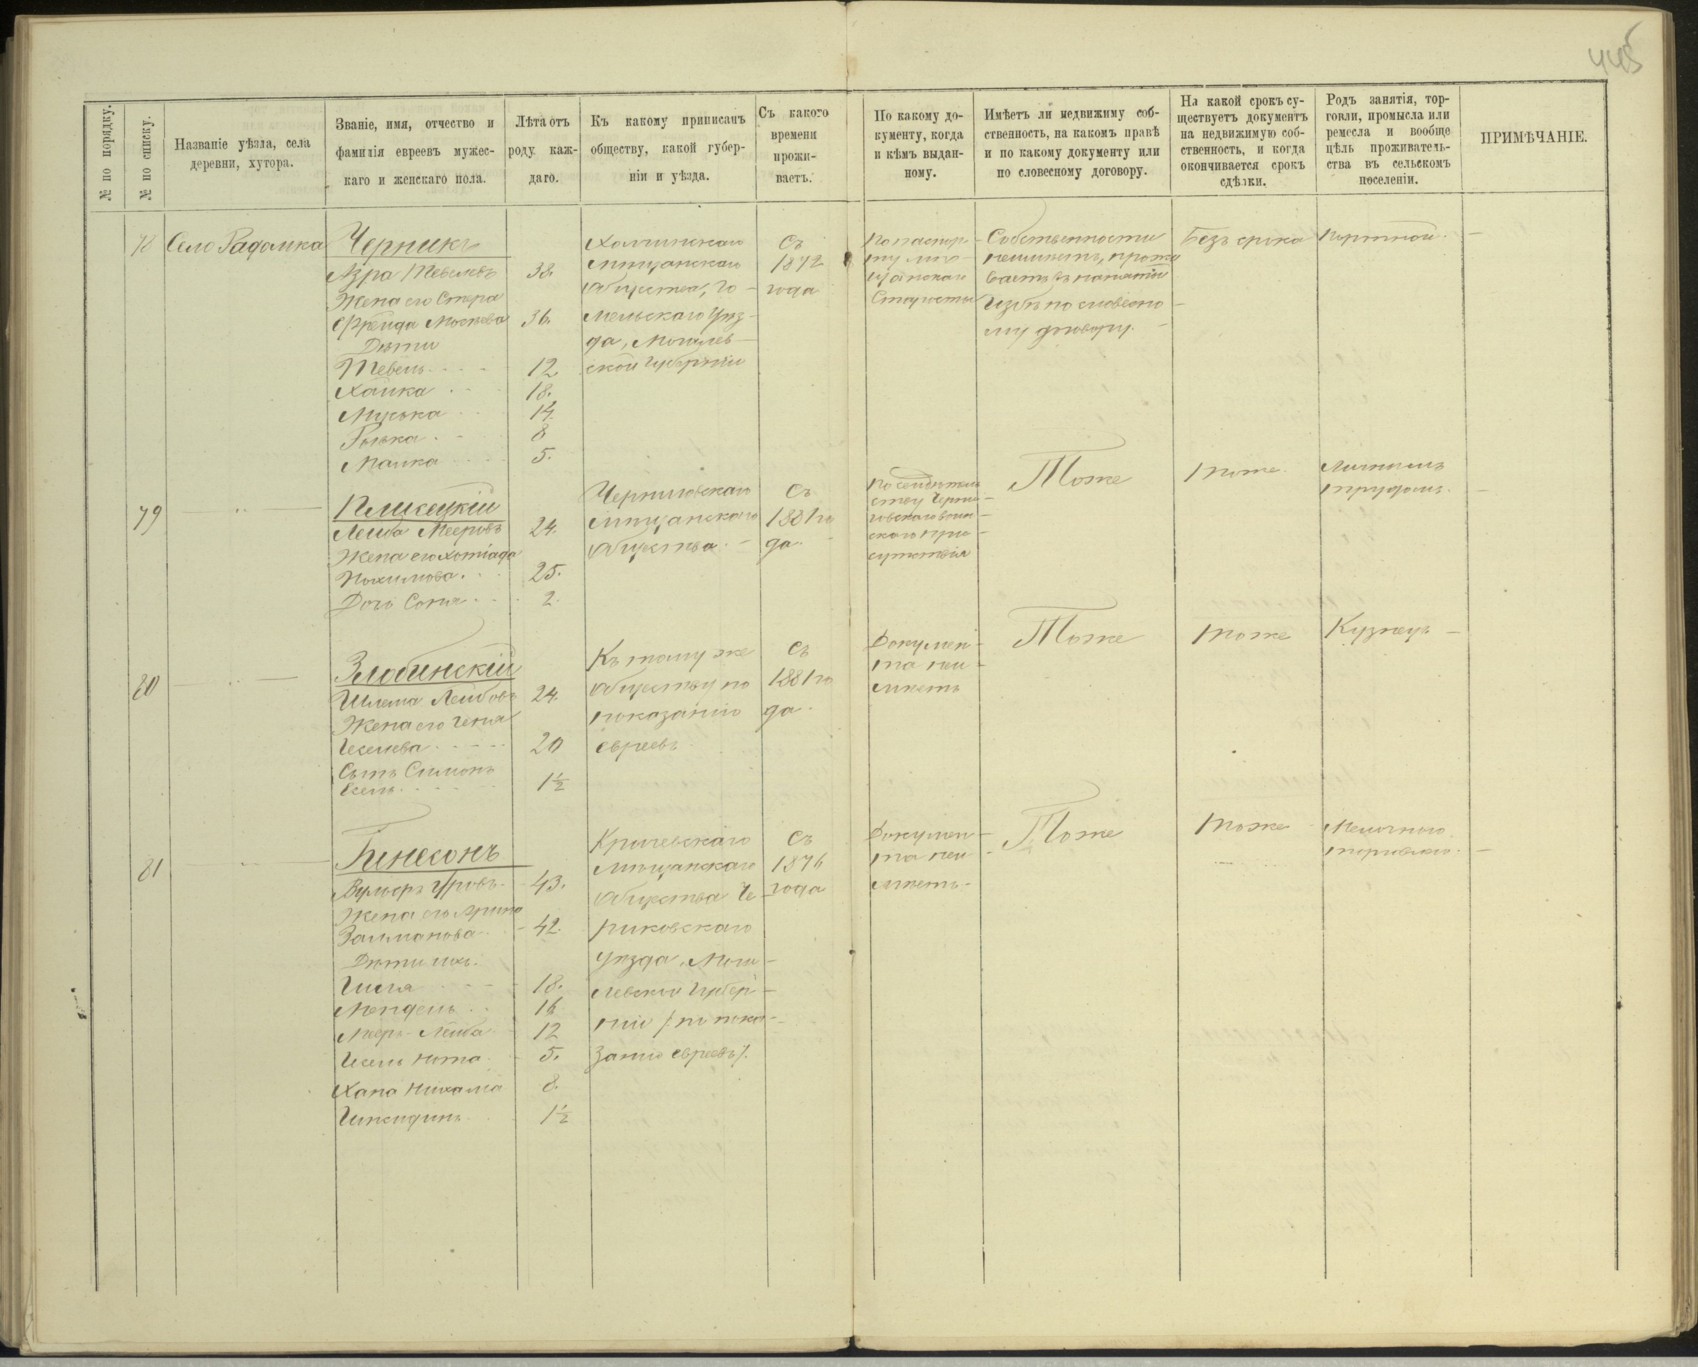 445
№ по порядку.
№ по списку.
Названіе уѣзда, села
деревни, хутора.
Званіе, имя, отчество и
фамилія евреевъ мужес-
каго и женскаго пола.
Лѣта отъ
роду каж-
даго.
Къ какому приписанъ
обществу, какой губер-
ніи и уѣзда.
Съ какого
времени
прожи-
ваетъ.
По какому до-
кументу, когда
и кѣмъ выдан-
ному.
Имѣетъ ли недвижиму соб-
ственность, на какомъ правѣ
и по какому документу или
по словесному договору.
На какой срокъ су-
ществуетъ документъ
на недвижимую соб-
ственность, и когда
окончивается срокъ
сдѣлки.
Родъ занятія, тор-
говли, промысла или
ремесла и вообще
цѣль проживатель-
ства въ сельскомъ
поселеніи.
ПРИМѢЧАНІЕ.
78
Село Радомка
Черникъ
Азра Тевелевъ 38.
Жена его
Фрейда 36.
Дѣти
Тевель 12
Хайка 18.
Муська 14.
8
Малка 5.
мѣщанскаго
общества, Го-
мельскаго Уѣз-
да, Могилев-
ской Губерніи
Съ
1872
года
По паспор-
ту
Старосты
Собственности
неимѣетъ, прожи
ваетъ въ нанятой
избѣ по словесно-
му договору.
Безъ срока
Портной.
79
Плисецкій
Лейба Мееровъ 24.
Жена его
25.
Дочь Соня 2.
Черниговскаго
мѣщанскаго
общества.
Съ
1881 го
да.
По свидѣтель
ству Черни-
говскаго воин-
скаго при-
сутствія
Тоже
тоже.
Личнымъ
трудомъ.
80
Злобинскій
Шлема Лейбовъ 24.
Жена его Геня
20
Сынъ Симонъ
1½
Къ тому же
обществу по
показанію
евреевъ.
Съ
1881 го
да.
Докумен-
та неи-
мѣетъ
Тоже
тоже
Кузнецъ
81
Гинесонъ
Вульфъ 43.
Жена его
Залманова 42.
Дѣти ихъ.
18.
Мендель 16
Лейба 12
5.
Хана 8.
1½
Кричевскаго
мѣщанскаго
общества Че-
риковскаго
уѣзда, Моги-
левской Губер-
ніи / по пока-
занію евреевъ /.
Съ
1876
года
Докумен-
та неи-
мѣетъ.
Тоже
тоже
Мелочною
торговлею.